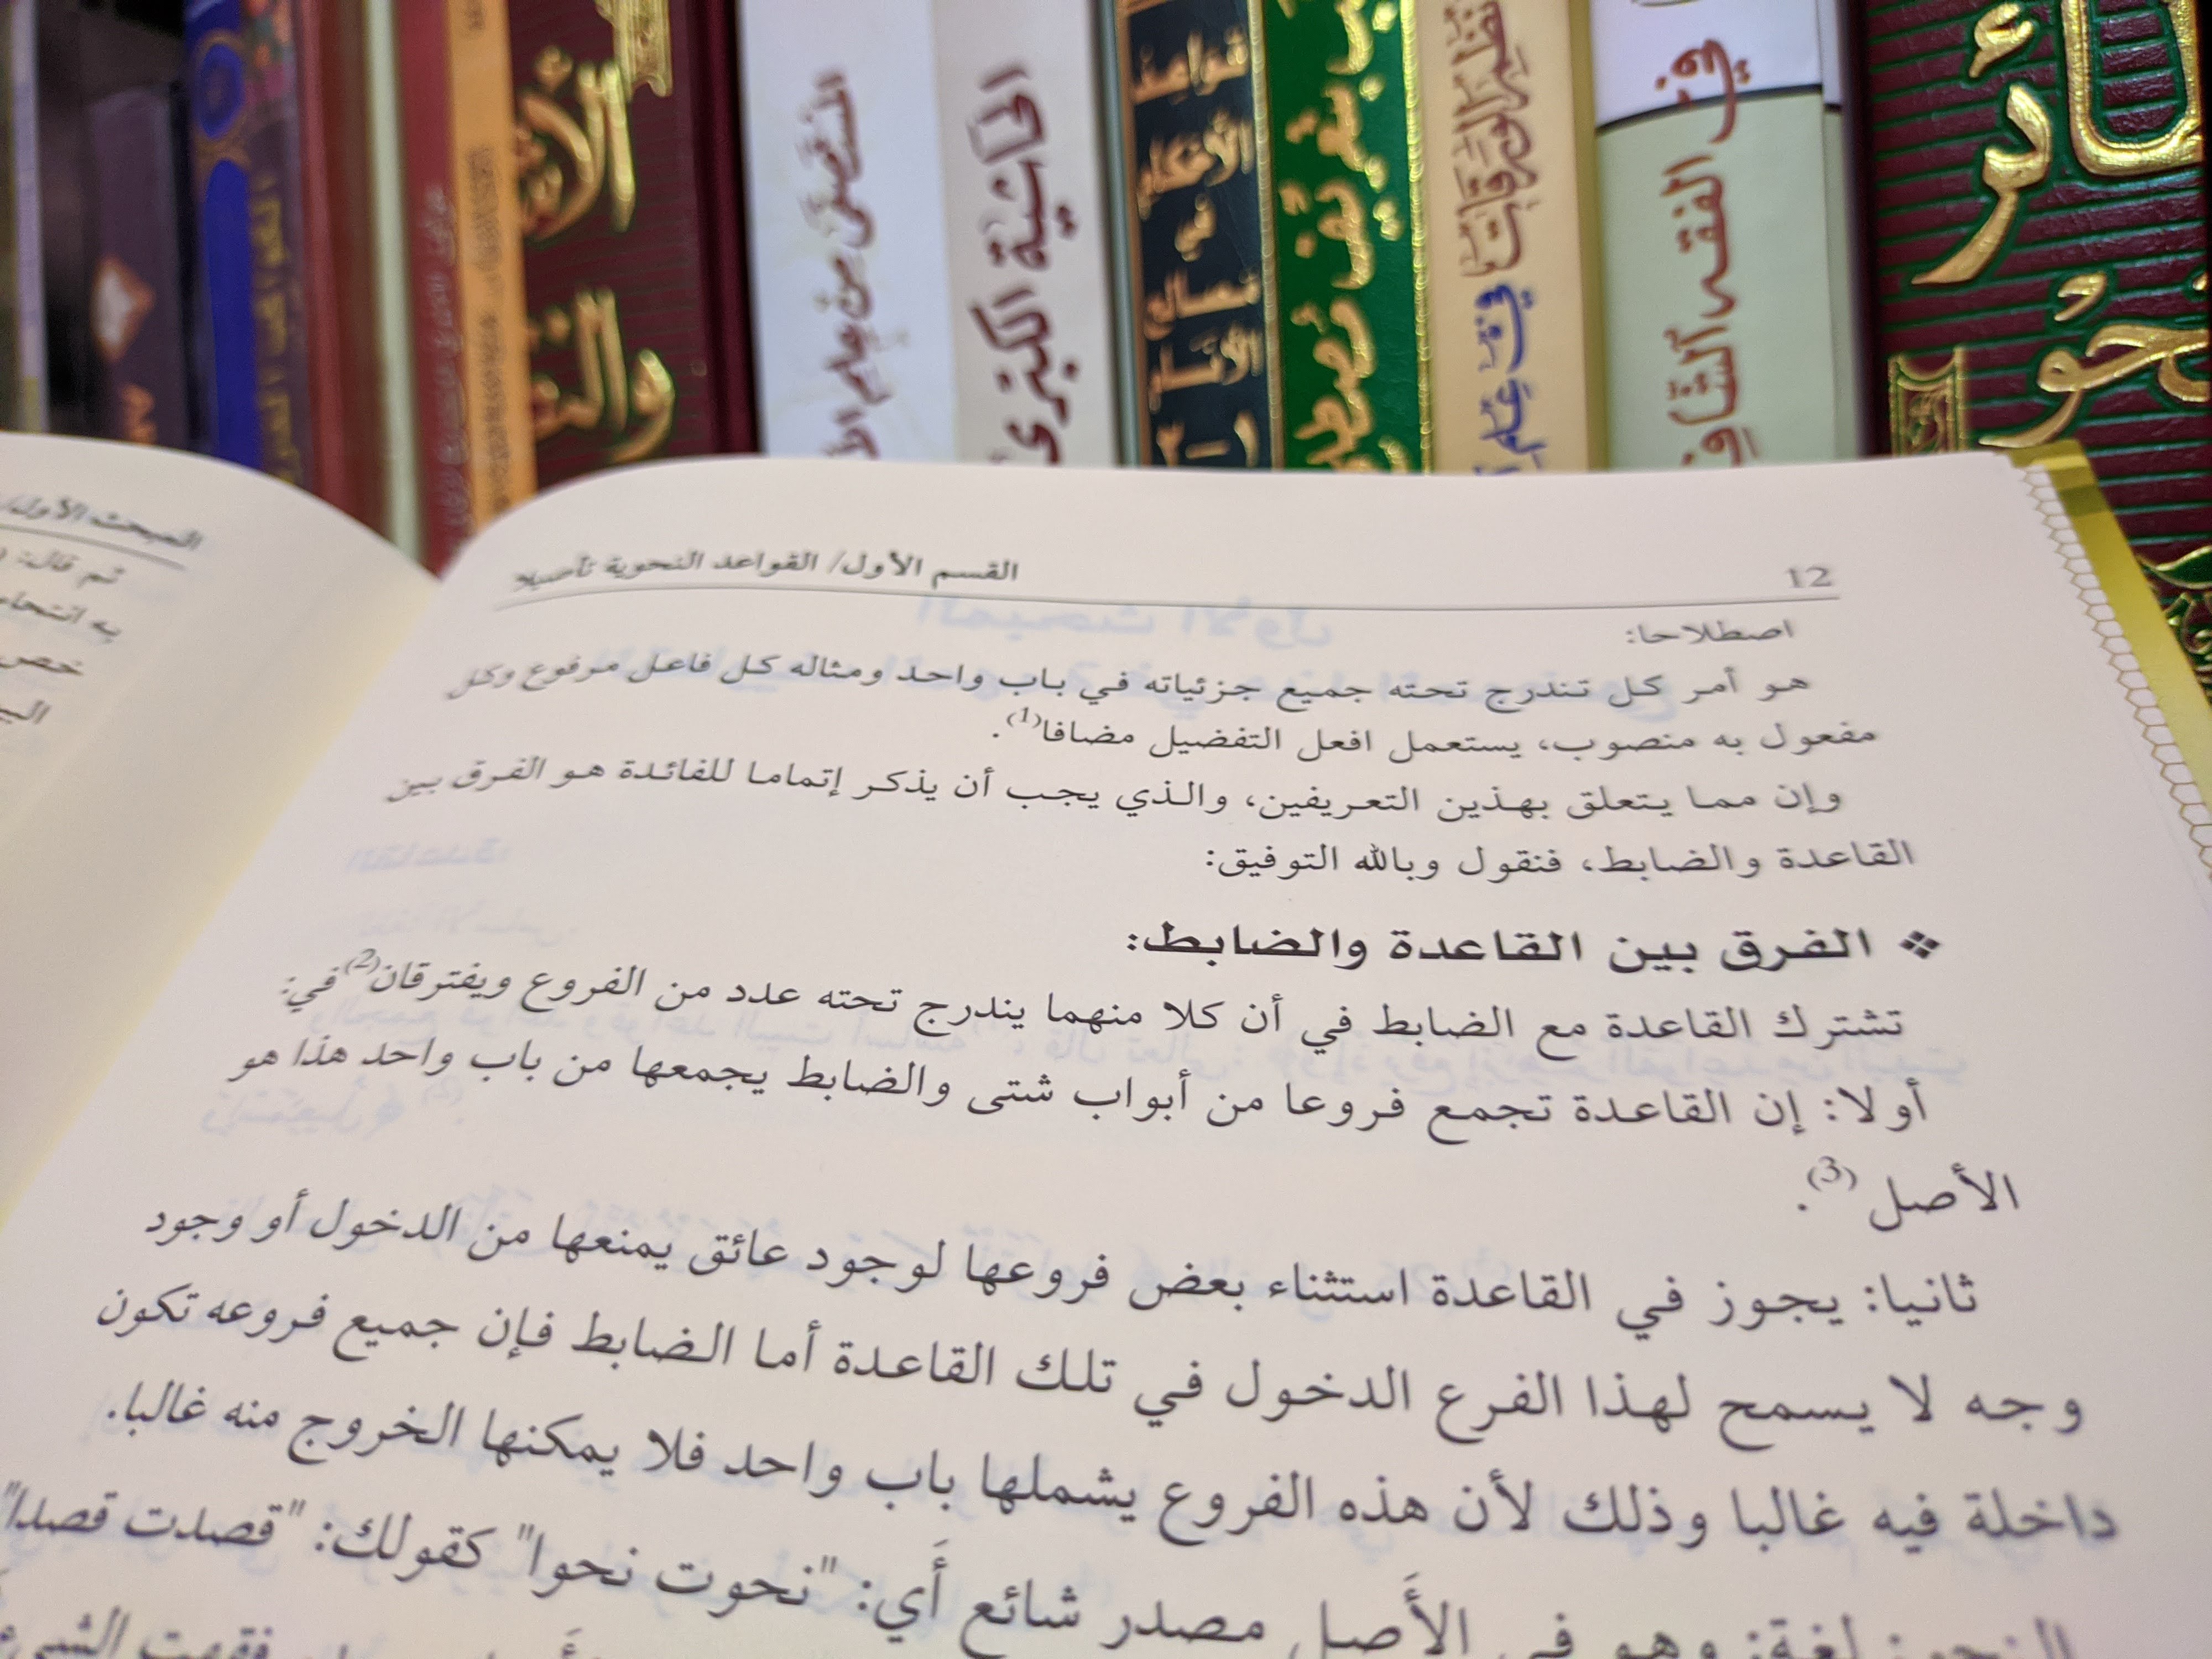 الحاشية الكبرى
قواعد
الأحكام
في
مصالح
الأنام
١-٢
في
القسم الأول/ القواعد النحوية تأصيلا
12
اصطلاحا:
هو أمر كل تندرج تحته جميع جزئياته في باب واحد ومثاله كل فاعل مرفوع وكل
مفعول به منصوب، يستعمل افعل التفضيل مضافا(1).
وإن مما يتعلق بهذين التعريفين، والذي يجب أن يذكر إتماما للفائدة هو الفرق بين
القاعدة والضابط، فنقول وبالله التوفيق:
❖ الفرق بين القاعدة والضابط:
تشترك القاعدة مع الضابط في أن كلا منهما يندرج تحته عدد من الفروع ويفترقان(2) في:
أولا: إن القاعدة تجمع فروعا من أبواب شتى والضابط يجمعها من باب واحد هذا هو
الأصل (3).
ثانيا: يجوز في القاعدة استثناء بعض فروعها لوجود عائق يمنعها من الدخول أو وجود
وجه لا يسمح لهذا الفرع الدخول في تلك القاعدة أما الضابط فإن جميع فروعه تكون
داخلة فيه غالبا وذلك لأن هذه الفروع يشملها باب واحد فلا يمكنها الخروج منه غالبا.
النحو: لغة: وهو في الأَصل مصدر شائع أَي: "نحوت نحوا" كقولك: "قصدت قصدا"
فقهت الشيء
المبحث الأول/
ثم قال:
به انتحاء